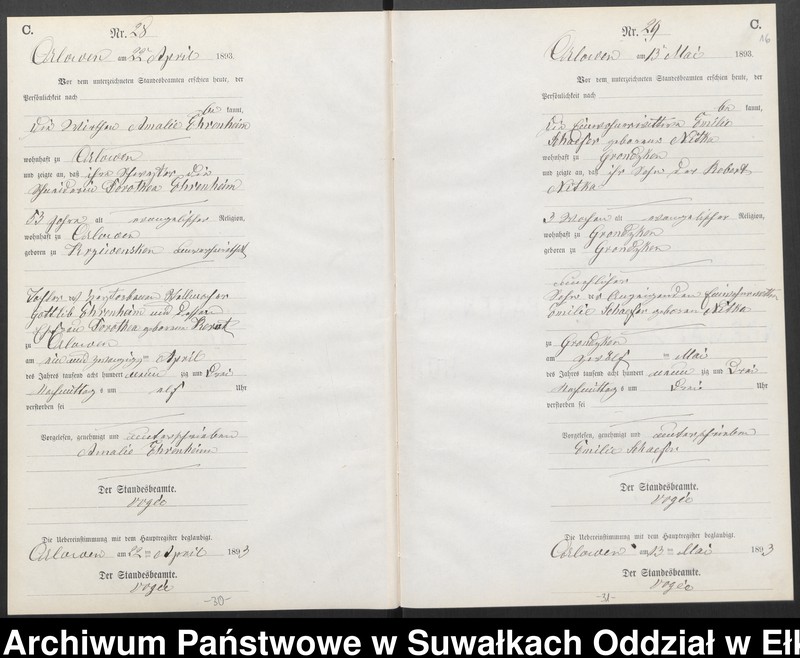 C.
Nr. 28
Orlowen am 22ⁿ April 1893.
Vor dem unterzeichneten Standesbeamten erschien heute, der
Persönlichkeit nach
be kannt,
die Wirthin Amalie Ehrenheim
wohnhaft zu Orlowen
und zeigte an, daß ihre Schwester die
Schneiderin Dorothea Ehrenheim
53 Jahre alt evangelischer Religion,
wohnhaft zu Orlowen
geboren zu Krziwensken unverehelicht
Tochter des verstorbenen
Gottlib Ehrenheim und dessen
Ehefrau Dorothea geborenen
zu Orlowen
am ein und zwanzigsten April
des Jahres tausend acht hundert neun zig und drei
Nachmittag s um elf Uhr
verstorben sei
Vorgelesen, genehmigt und unterschrieben
Amalie Ehrenheim
Der Standesbeamte.
Die Uebereinstimmung mit dem Hauptregister beglaubigt.
Orlowen am 22ten April 1893
Der Standesbeamte.
-30-
C.
16
Nr. 29
Orlowen am 13ⁿ Mai 1893.
Vor dem unterzeichneten Standesbeamten erschien heute, der
Persönlichkeit nach
be kannt,
die Einwohnerwittwe Emilie
Schaefer geborene Nitka
wohnhaft zu Grondzken
und zeigte an, daß ihr Sohn der Robert
Nitka
3 Wochen alt evangelischer Religion,
wohnhaft zu Grondzken
geboren zu Grondzken
unehelicher
Sohn der Anzeigenden Einwohnerwittwe
Emilie Schaefer geborene Nitka
zu Grondzken
am zwölf ten Mai
des Jahres tausend acht hundert neun zig und drei
Nachmittag s um drei Uhr
verstorben sei
Vorgelesen, genehmigt und unterschrieben
Emilie Schaefer
Der Standesbeamte.
Die Uebereinstimmung mit dem Hauptregister beglaubigt.
Orlowen am 13ten Mai 1893
Der Standesbeamte.
-31-
Archiwum Państwowe w Suwałkach Oddział w Ełk